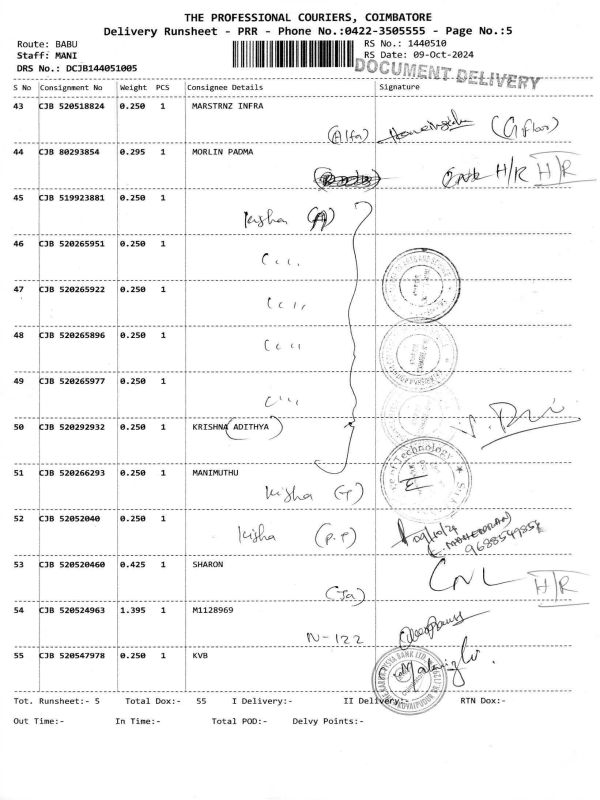 THE PROFESSIONAL COURIERS, COIMBATORE
Delivery Runsheet - PRR - Phone No.:0422-3505555 - Page No.:5
Route: BABU RS No.: 1440510
Staff: MANI RS Date: 09-Oct-2024
DRS No.: DCJB144051005 DOCUMENT DELIVERY
S No Consignment No Weight PCS Consignee Details Signature
43 CJB 520518824 0.250 1 MARSTRNZ INFRA
(Alfa)
44 CJB 80293854 0.295 1 MORLIN PADMA
H/R H/R
45 CJB 519923881 0.250 1
Kisha (A)
46 CJB 520265951 0.250 1
47 CJB 520265922 0.250 1
48 CJB 520265896 0.250 1
49 CJB 520265977 0.250 1
50 CJB 520292932 0.250 1 KRISHNA ADITHYA
51 CJB 520266293 0.250 1 MANIMUTHU
Kisha (T)
of Technology
52 CJB 52052040 0.250 1
Kisha (P.P)
09/10/24
9688549854
53 CJB 520520460 0.425 1 SHARON
(Ja)
CNL H/R
54 CJB 520524963 1.395 1 M1128969
N-122
55 CJB 520547978 0.250 1 KVB
Tot. Runsheet:- 5 Total Dox:- 55 I Delivery:- II Delivery:- RTN Dox:-
Out Time:- In Time:- Total POD:- Delvy Points:-